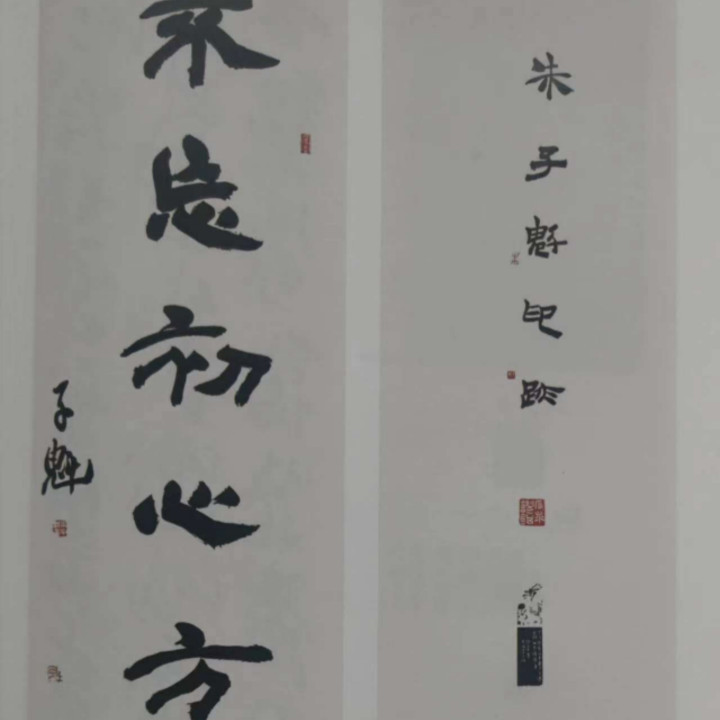 朱子魁印跡
不忘初心方
子魁